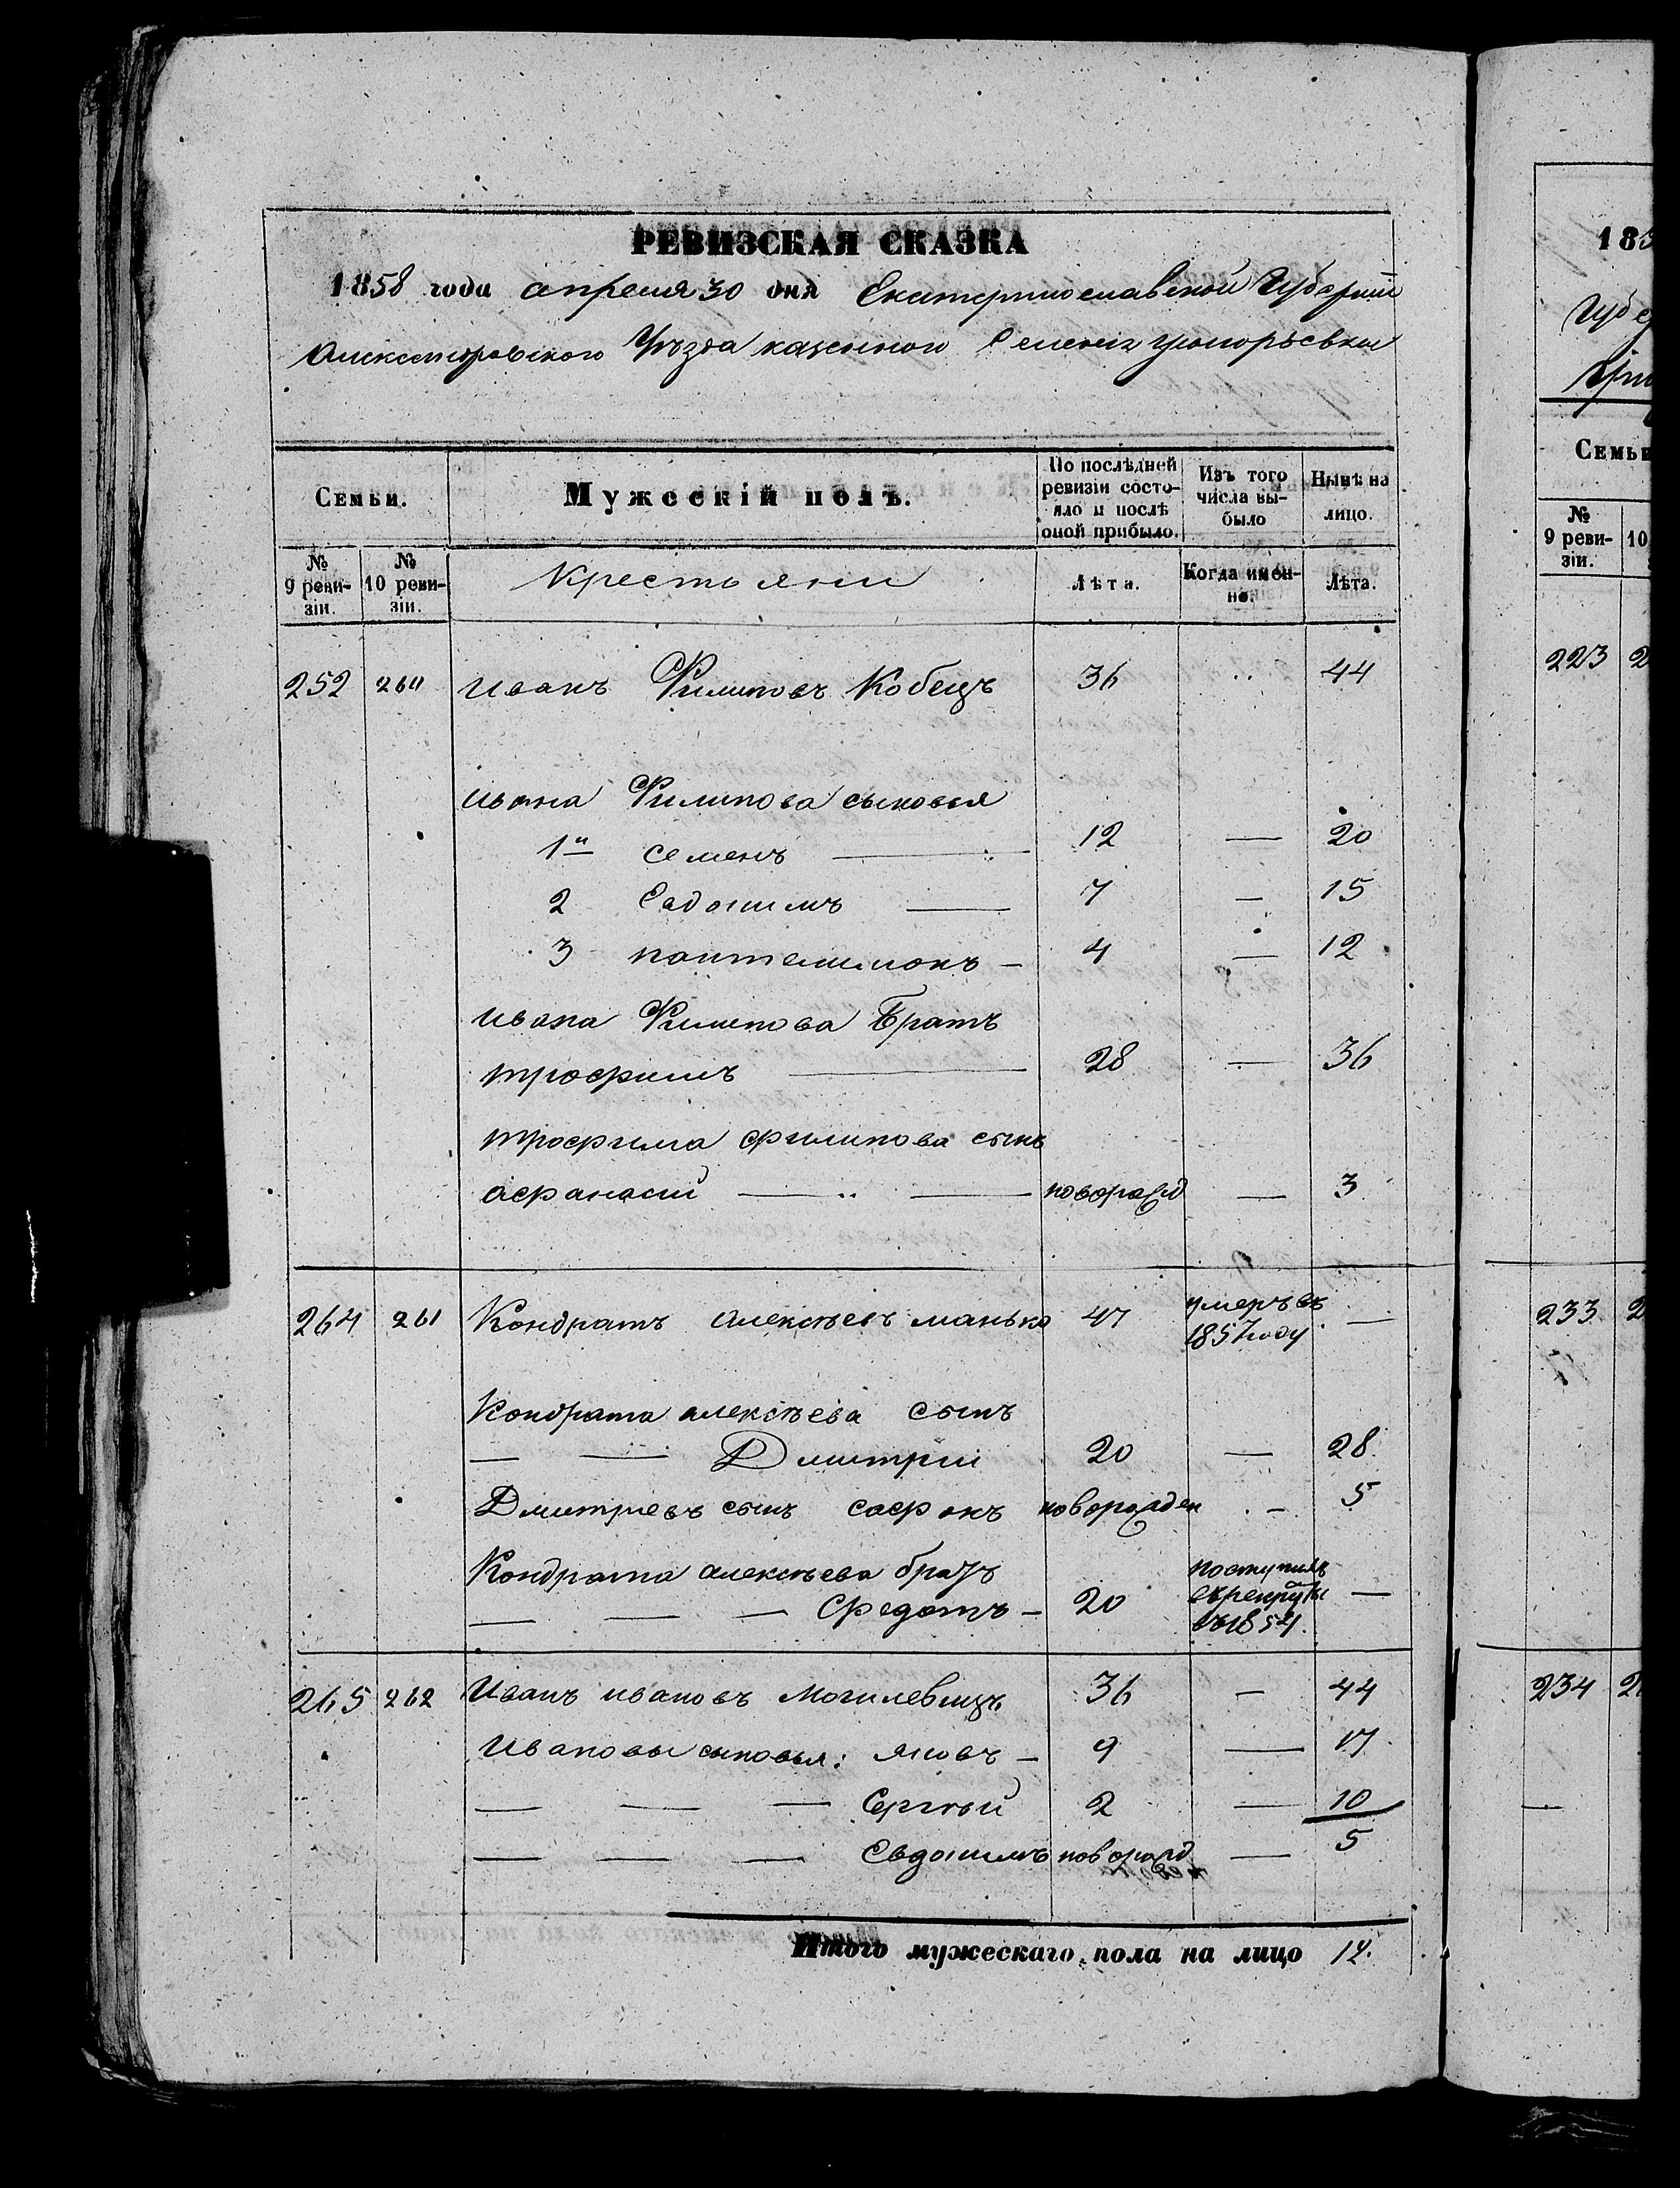 РЕВИЗСКАЯ СКАЗКА
1858 года апреля 30 дня Екатеринославской Губерніи
Александровского Уѣзда казенной Селенія Григорьевки
Семьи.
Мужескій полъ.
По послѣдней ревизіи состояло и послѣ оной прибыло.
Изъ того числа выбыло
Нынѣ на лицо.
№ 9 ревизіи.
№ 10 ревизіи.
Крестьяни
Лѣта.
Когда именно.
Лѣта.
252 260 Иванъ Филиповъ Кобецъ 36 44
Ивана Филипова сыновья
1й Семенъ — 12 — 20
2 Евдокимъ — 7 — 15
3 Пантелимонъ — 4 — 12
Ивана Филипова Братъ
Трофимъ — 28 — 36
Трофима Филипова сынъ
Афанасій — — новорожд — 3
264 261 Кондратъ Алексѣевъ Манько 47 умеръ въ 1857 году —
Кондрата Алексѣева сынъ
— — Дмитрій 20 — 28
Дмитріевъ сынъ Сафонъ новорожден — 5
Кондрата Алексѣева братъ
— — — Федотъ — 20 поступилъ въ рекруты въ 1854. —
265 262 Иванъ Ивановъ Могилевецъ 36 — 44
Ивановы сыновья: Яковъ — 9 — 17
— — — Сергѣй 2 — 10
— — — Евдокимъ новорожд — 5
Итого мужескаго пола на лицо 12.
183
Губе
Гри
Семьи
№ 9 ревизіи.
10
223 2
233 2
234 2